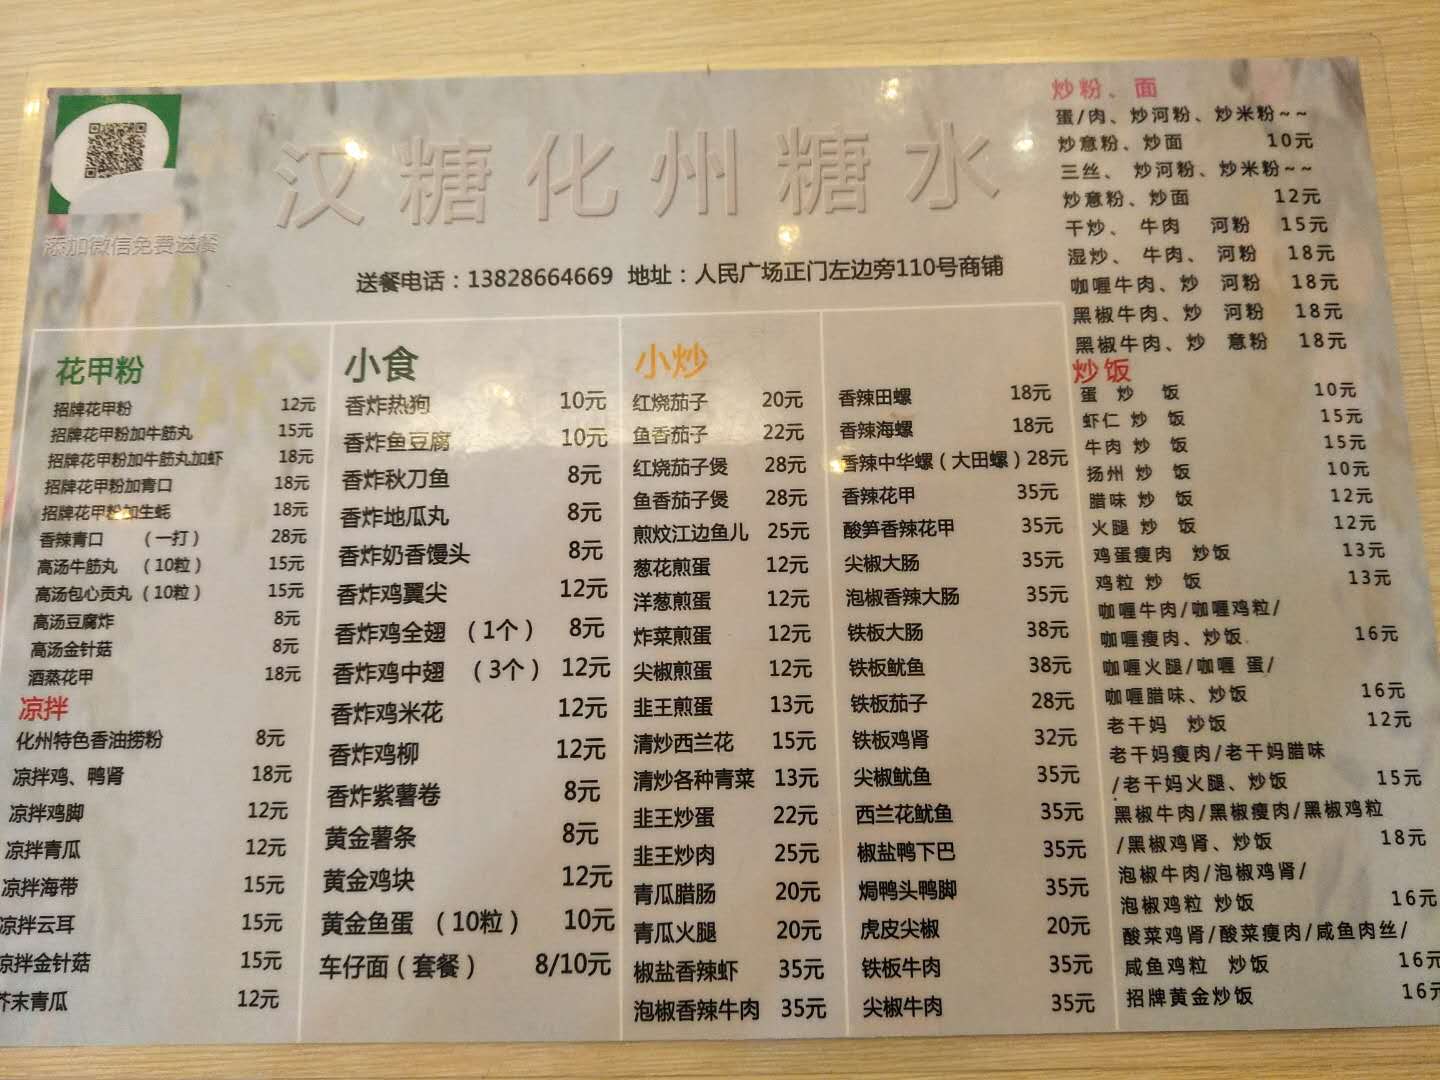 汉糖化州糖水
添加微信免费送餐
送餐电话：13828664669 地址：人民广场正门左边旁110号商铺
花甲粉
招牌花甲粉 12元
招牌花甲粉加牛筋丸 15元
招牌花甲粉加牛筋丸加虾 18元
招牌花甲粉加青口 18元
招牌花甲粉加生蚝 18元
香辣青口 （一打） 28元
高汤牛筋丸 （10粒） 15元
高汤包心贡丸（10粒） 15元
高汤豆腐炸 8元
高汤金针菇 8元
酒蒸花甲 18元
凉拌
化州特色香油捞粉 8元
凉拌鸡、鸭肾 18元
凉拌鸡脚 12元
凉拌青瓜 12元
凉拌海带 15元
凉拌云耳 15元
凉拌金针菇 15元
芥末青瓜 12元
小食
香炸热狗 10元
香炸鱼豆腐 10元
香炸秋刀鱼 8元
香炸地瓜丸 8元
香炸奶香馒头 8元
香炸鸡翼尖 12元
香炸鸡全翅 （1个） 8元
香炸鸡中翅 （3个） 12元
香炸鸡米花 12元
香炸鸡柳 12元
香炸紫薯卷 8元
黄金薯条 8元
黄金鸡块 12元
黄金鱼蛋 （10粒） 10元
车仔面（套餐） 8/10元
小炒
红烧茄子 20元
鱼香茄子 22元
红烧茄子煲 28元
鱼香茄子煲 28元
煎炆江边鱼儿 25元
葱花煎蛋 12元
洋葱煎蛋 12元
炸菜煎蛋 12元
尖椒煎蛋 12元
韭王煎蛋 13元
清炒西兰花 15元
清炒各种青菜 13元
韭王炒蛋 22元
韭王炒肉 25元
青瓜腊肠 20元
青瓜火腿 20元
椒盐香辣虾 35元
泡椒香辣牛肉 35元
香辣田螺 18元
香辣海螺 18元
香辣中华螺（大田螺）28元
香辣花甲 35元
酸笋香辣花甲 35元
尖椒大肠 35元
泡椒香辣大肠 35元
铁板大肠 38元
铁板鱿鱼 38元
铁板茄子 28元
铁板鸡肾 32元
尖椒鱿鱼 35元
西兰花鱿鱼 35元
椒盐鸭下巴 35元
焗鸭头鸭脚 35元
虎皮尖椒 20元
铁板牛肉 35元
尖椒牛肉 35元
炒粉、面
蛋/肉、炒河粉、炒米粉~~
炒意粉、炒面 10元
三丝、 炒河粉、炒米粉~~
炒意粉、炒面 12元
干炒、 牛肉 河粉 15元
湿炒、 牛肉、 河粉 18元
咖喱牛肉、炒 河粉 18元
黑椒牛肉、炒 河粉 18元
黑椒牛肉、炒 意粉 18元
炒饭
蛋 炒 饭 10元
虾仁 炒 饭 15元
牛肉 炒 饭 15元
扬州 炒 饭 10元
腊味 炒 饭 12元
火腿 炒 饭 12元
鸡蛋瘦肉 炒饭 13元
鸡粒 炒 饭 13元
咖喱牛肉/咖喱鸡粒/
咖喱瘦肉、炒饭 16元
咖喱火腿/咖喱 蛋/
咖喱腊味、炒饭 16元
老干妈 炒饭 12元
老干妈瘦肉/老干妈腊味
/老干妈火腿、炒饭 15元
黑椒牛肉/黑椒瘦肉/黑椒鸡粒
/黑椒鸡肾、炒饭 18元
泡椒牛肉/泡椒鸡肾/
泡椒鸡粒 炒饭 16元
酸菜鸡肾/酸菜瘦肉/咸鱼肉丝/
咸鱼鸡粒 炒饭 16元
招牌黄金炒饭 16元